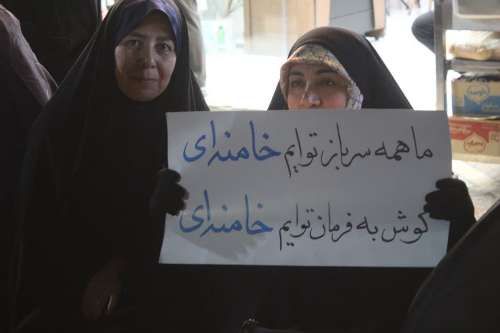 ما همه سرباز توایم خامنه‌ای
گوش به فرمان توایم خامنه‌ای